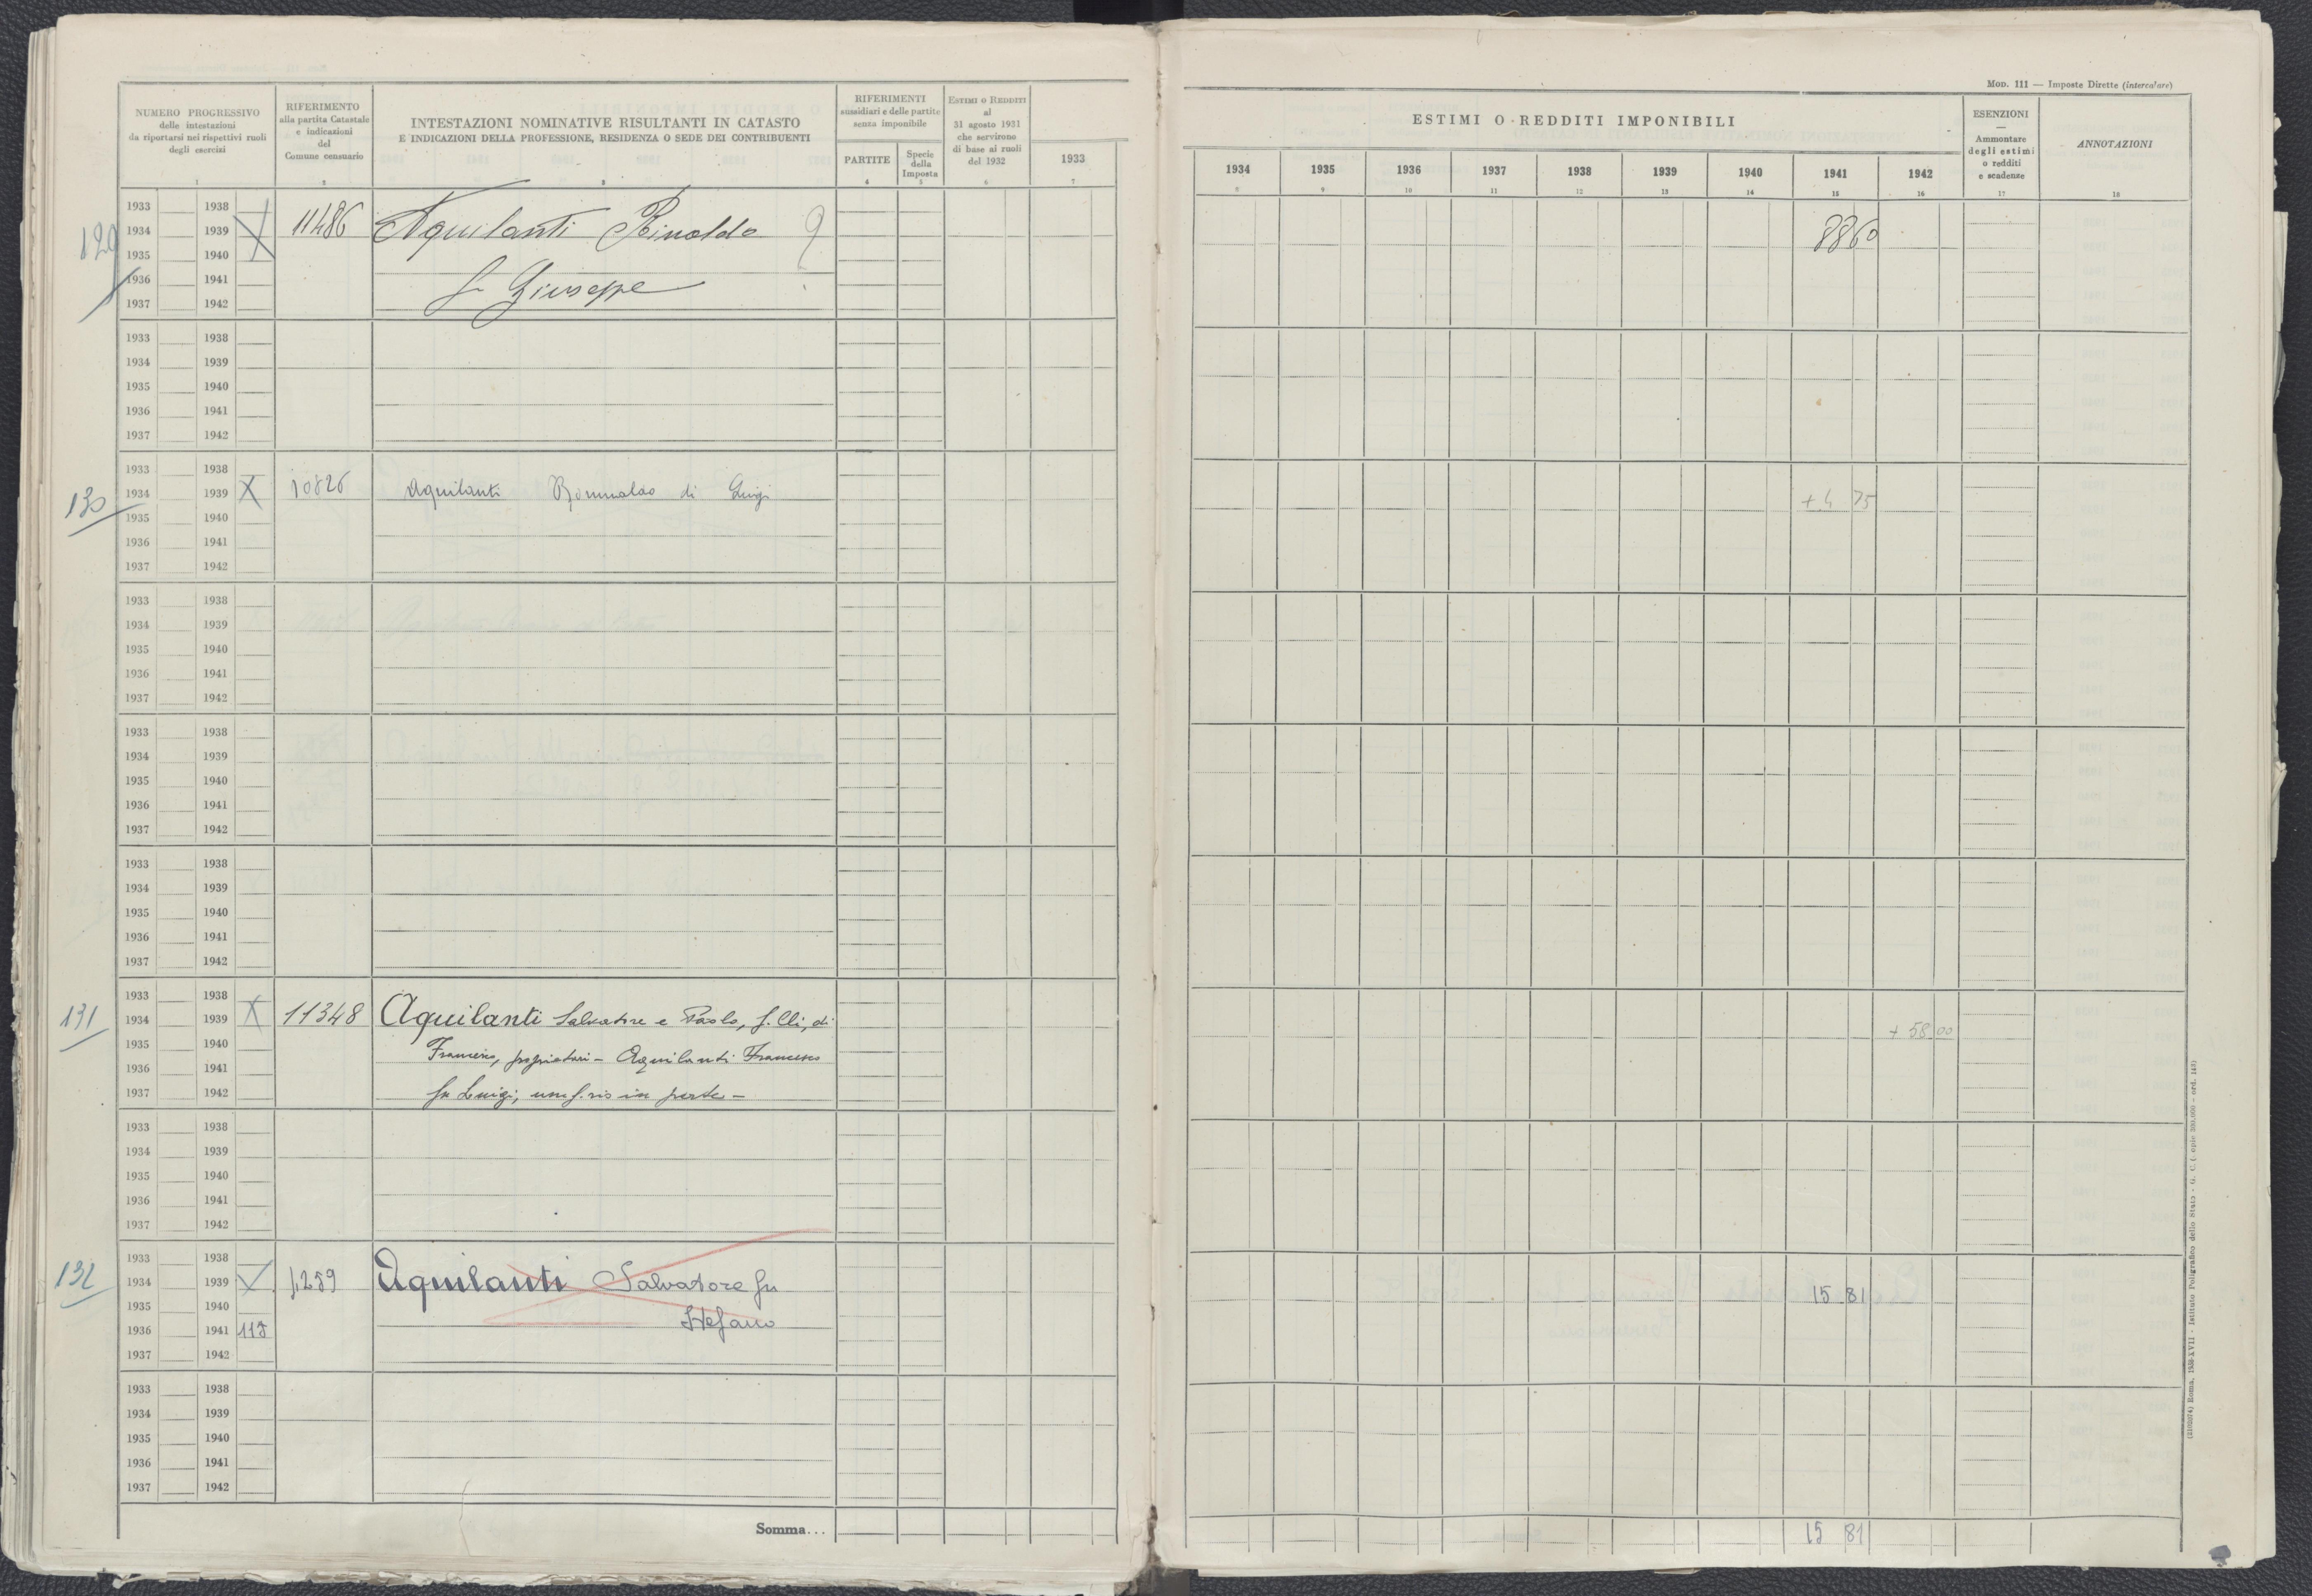 Mod. 111 — Imposte Dirette (intercalare)
NUMERO PROGRESSIVO
delle intestazioni
da riportarsi nei rispettivi ruoli
degli esercizi
1
RIFERIMENTO
alla partita Catastale
e indicazioni
del
Comune censuario
2
INTESTAZIONI NOMINATIVE RISULTANTI IN CATASTO
E INDICAZIONI DELLA PROFESSIONE, RESIDENZA O SEDE DEI CONTRIBUENTI
3
RIFERIMENTI
sussidiari e delle partite
senza imponibile
PARTITE
4
Specie
della
Imposta
5
Estimi o Redditi
al
31 agosto 1931
che servirono
di base ai ruoli
del 1932
6
1933
7
ESTIMI O REDDITI IMPONIBILI
1934 1935 1936 1937 1938 1939 1940 1941 1942
8 9 10 11 12 13 14 15 16
ESENZIONI
—
Ammontare
degli estimi
o redditi
e scadenze
17
ANNOTAZIONI
18
1933 1938
129 1934 1939 X 11486 Aquilanti Rinaldo ? 8860
1935 1940
1936 1941 fu Giuseppe
1937 1942
1933 1938
1934 1939
1935 1940
1936 1941
1937 1942
1933 1938
130 1934 1939 X 10826 Aquilanti Romualdo di Luigi + 4 75
1935 1940
1936 1941
1937 1942
1933 1938
1934 1939
1935 1940
1936 1941
1937 1942
1933 1938
1934 1939
1935 1940
1936 1941
1937 1942
1933 1938
1934 1939
1935 1940
1936 1941
1937 1942
1933 1938
131 1934 1939 X 11348 Aquilanti Salvatore e Paolo, f.lli, di + 58 00
1935 1940 Francesco, proprietari – Aquilanti Francesco
1936 1941
1937 1942 fu Luigi, usuf.rio in parte –
1933 1938
1934 1939
1935 1940
1936 1941
1937 1942
1933 1938
132 1934 1939 Aquilanti Salvatore fu 15 81
1935 1940 Stefano
1936 1941
1937 1942
1933 1938
1934 1939
1935 1940
1936 1941
1937 1942
Somma... 15 81